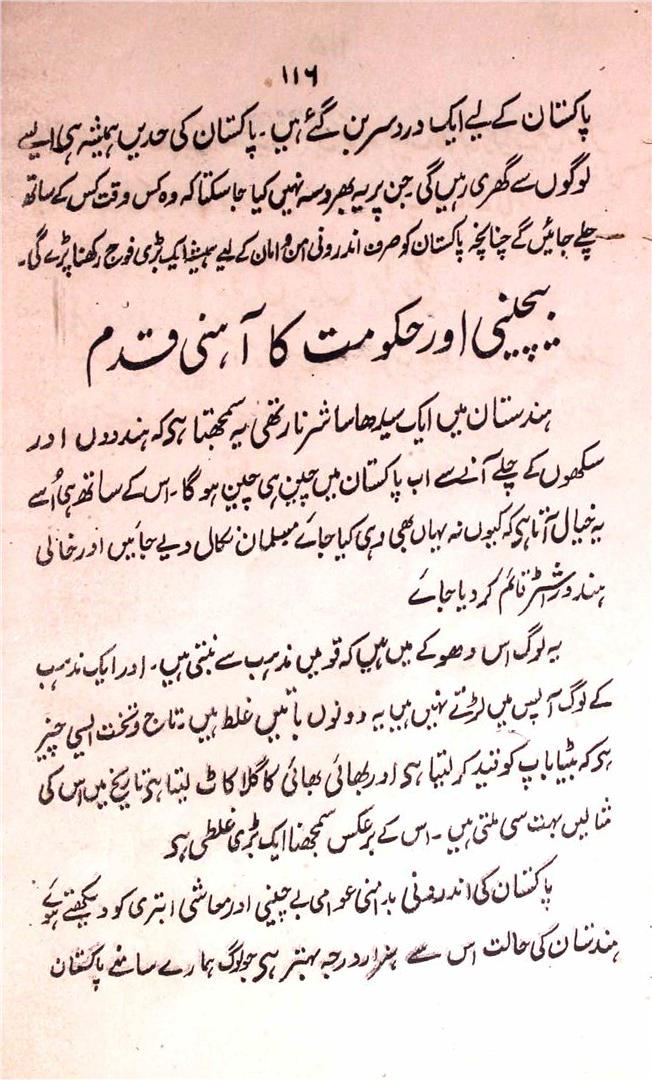 ۱۱۶
پاکستان کے لیے ایک درد سر بن گئے ہیں۔ پاکستان کی حدیں ہمیشہ ہی ایسے
لوگوں سے گھری رہیں گی جن پر یہ بھروسہ نہیں کیا جا سکتا کہ وہ کس وقت کس کے ساتھ
چلے جائیں گے چنانچہ پاکستان کو صرف اندرونی امن و امان کے لیے ہمیشہ ایک بڑی فوج رکھنا پڑے گی۔
بیچینی اور حکومت کا آہنی قدم
ہندستان میں ایک سیدھا سا شرنارتھی یہ سمجھتا ہے کہ ہندوں اور
سکھوں کے چلے آنے سے اب پاکستان میں چین ہی چین ہو گا۔ اس کے ساتھ ہی اُسے
یہ خیال آتا ہے کہ کیوں نہ یہاں بھی وہی کیا جائے مسلمان نکال دیے جائیں اور خالی
ہندو راشٹر قائم کر دیا جائے
یہ لوگ اس دھوکے میں ہیں کہ قومیں مذہب سے بنتی ہیں۔ اور ایک مذہب
کے لوگ آپس میں لڑتے نہیں ہیں یہ دونوں باتیں غلط ہیں۔ تاج و تخت ایسی چیز
ہے کہ بیٹا باپ کو قید کر لیتا ہے اور بھائی بھائی کا گلا کاٹ لیتا ہے تاریخ میں اس کی
مثالیں بہت سی ملتی ہیں۔ اس کے برعکس سمجھنا ایک بڑی غلطی ہے
پاکستان کی اندرونی بدامنی عوامی بے چینی اور معاشی ابتری کو دیکھتے ہوئے
ہندستان کی حالت اس سے ہزار درجہ بہتر ہے جو لوگ ہمارے سامنے پاکستان